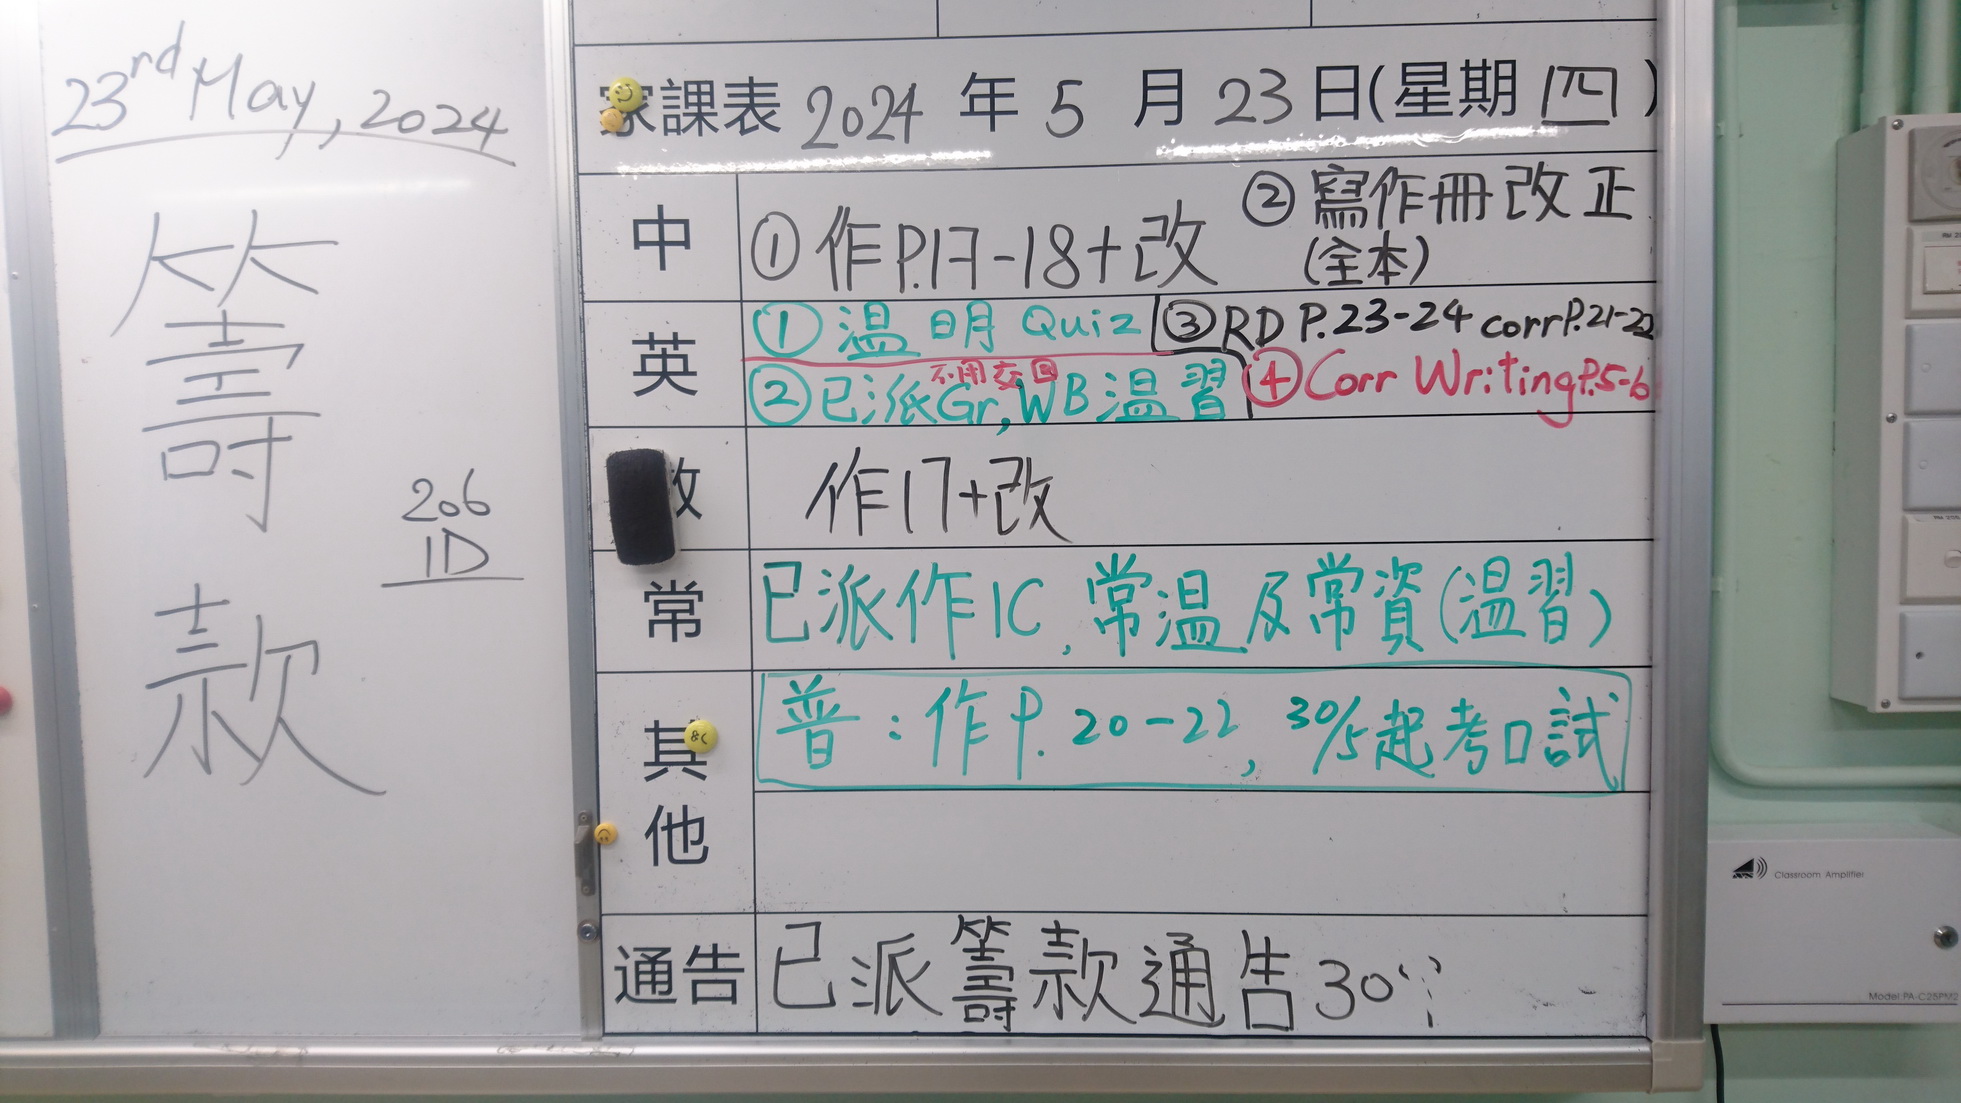 23rd May, 2024
籌款
206
1D
家課表 2024 年 5 月 23 日(星期 四 )
中
① 作P.17-18+改
② 寫作冊改正
(全本)
英
① 溫 明 Quiz
③ RD P.23-24 corr P.21-22
不用交回
② 已派Gr, WB 溫習
④ Corr Writing P.5-6
數
作17+改
常
已派作1C, 常溫及常資(溫習)
其他
普:作P. 20-22, 30/5起考口試
通告
已派籌款通告30
Classroom Amplifier
Model PA-C25PM2